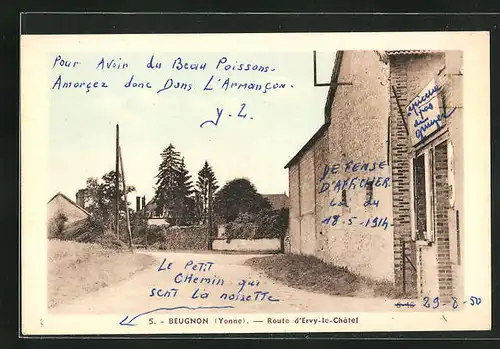 Pour Avoir du Beau Poissons.
Amorçez donc Dans L'Armançon.
y. L.
epicerie
DEFENSE
D'AFFICHER
Loi du
18-5-1914
Le Petit
Chemin qui
sent La noisette
5. - BEUGNON (Yonne). — Route d'Ervy-le-Châtel
29-8-50